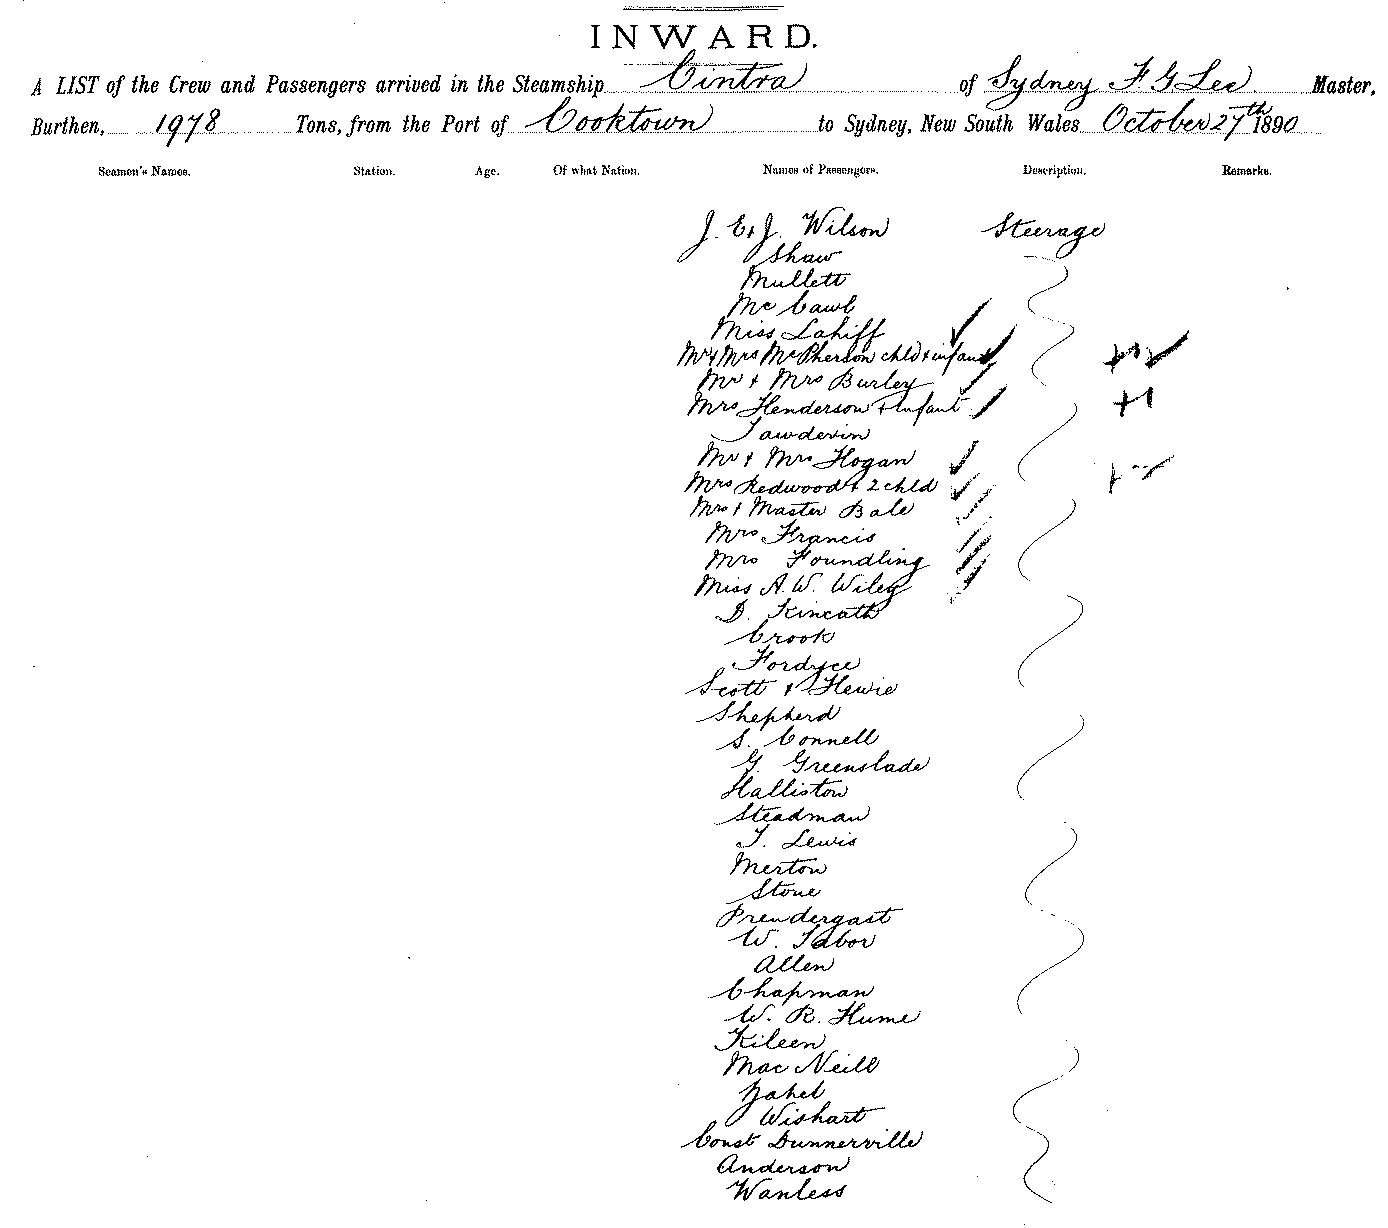 INWARD.
A LIST of the Crew and Passengers arrived in the Steamship Cintra of Sydney F G Lee Master,
Burthen, 1978 Tons, from the Port of Cooktown to Sydney, New South Wales October 27th 1890
Seamen's Names. Station. Age. Of what Nation. Names of Passengers. Description. Remarks.
J. E & J. Wilson Steerage
Shaw
Mullett
Mc Cawl
Miss Lahiff
Mr & Mrs McPherson chld & infant
Mr & Mrs Burley
Mrs Henderson & infant
Tawdevin
Mr & Mrs Hogan
Mrs Redwood & 2 chld
Mrs & Master Bale
Mrs Francis
Mrs Foundling
Miss A. W. Wiley
D. Kincath
Crook
Fordyce
Scott & Hewie
Shepherd
S. Connell
G. Greenslade
Halliston
Steadman
T. Lewis
Merton
Stone
Prendergast
W. Tabor
Allen
Chapman
W. R. Hume
Kileen
Mac Neill
Zahel
Wishart
Const Dunnerville
Anderson
Wanless